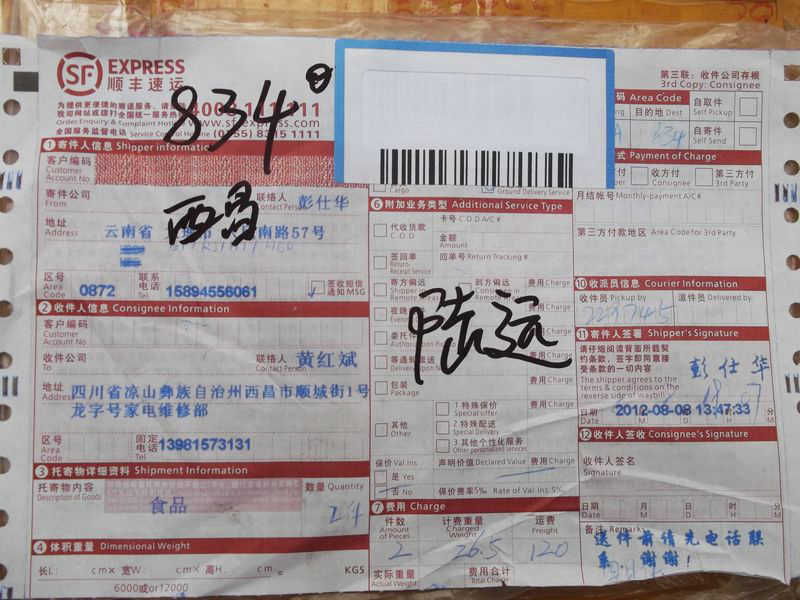 SF EXPRESS
顺丰速运
834
第三联：收件公司存根
3rd Copy: Consignee
为提供更便捷的顺递服务，请
我司网站或拨打全国统一服务热
Order Enquiry & Complaint Hotline 4008 111 111
www.sf-express.com
全国服务监督电话 Service Control Hotline (0755) 8315 1111
1 寄件人信息 Shipper Information
客户编码
Customer Account No.
寄件公司
From
联络人
Contact Person
彭仕华
西昌
地址
Address
云南省
南路57号
区号
Area Code
0872
联系电话
Tel
15894556061
签收短信通知MSG
2 收件人信息 Consignee Information
客户编码
Customer Account No.
收件公司
To
联络人
Contact Person
黄红斌
地址
Address
四川省凉山彝族自治州西昌市顺城街1号
龙字号家电维修部
区号
Area Code
固定电话
Tel
13981573131
3 托寄物详细资料 Shipment Information
托寄物内容
Description of Goods
食品
数量 Quantity
4 体积重量 Dimensional Weight
长L: cm× 宽W: cm× 高H: cm
6000或or12000
KGS
Cargo
Ground Delivery Service
6 附加业务类型 Additional Service Type
代收货款
C.O.D
卡号 C.O.D A/C#
金额
Amount
签回单
Receipt Service
回单号 Return Tracking #
寄方偏远
到方偏远
费用 Charge
陆运
委托件
等通知派送
包装
Package
费用 Charge
其他
Other
1 特殊保价
Special offer
2 特殊配送
Special Delivery
3 其他个性化服务
保价 Val Ins
是 Yes
否 No
声明价值 Declared Value
费用 Charge
保价费率5‰ Rate of Val Ins. 5‰
7 费用 Charge
件数
Amount of Pieces
计费重量
Charged Weight
运费
Freight
2
26.5
120
实际重量
Actual Weight
费用合计
Total Charge
码 Area Code
目的地 Dest
834
自取件
Self Pickup
自寄件
Self Send
式 Payment of Charge
收方付
Consignee
第三方付
3rd Party
月结帐号 Monthly-payment A/C#
第三方付款地区 Area Code for 3rd Party
10 收派员信息 Courier Information
收件员 Pickup by
派件员 Delivered by
11 寄件人签署 Shipper's Signature
请仔细阅读背面所载契
约条款，签字即同意接
受条款的一切内容
The shipper agrees to the
terms & conditions on the
reverse side of waybill
彭仕华
日期
Date
2012-08-08 13:47:33
12 收件人签收 Consignee's Signature
收件人签名
Signature
日期
Date
月
M
日
D
时
H
分
M
备注 Remarks
送件前请先电话联
系，谢谢！